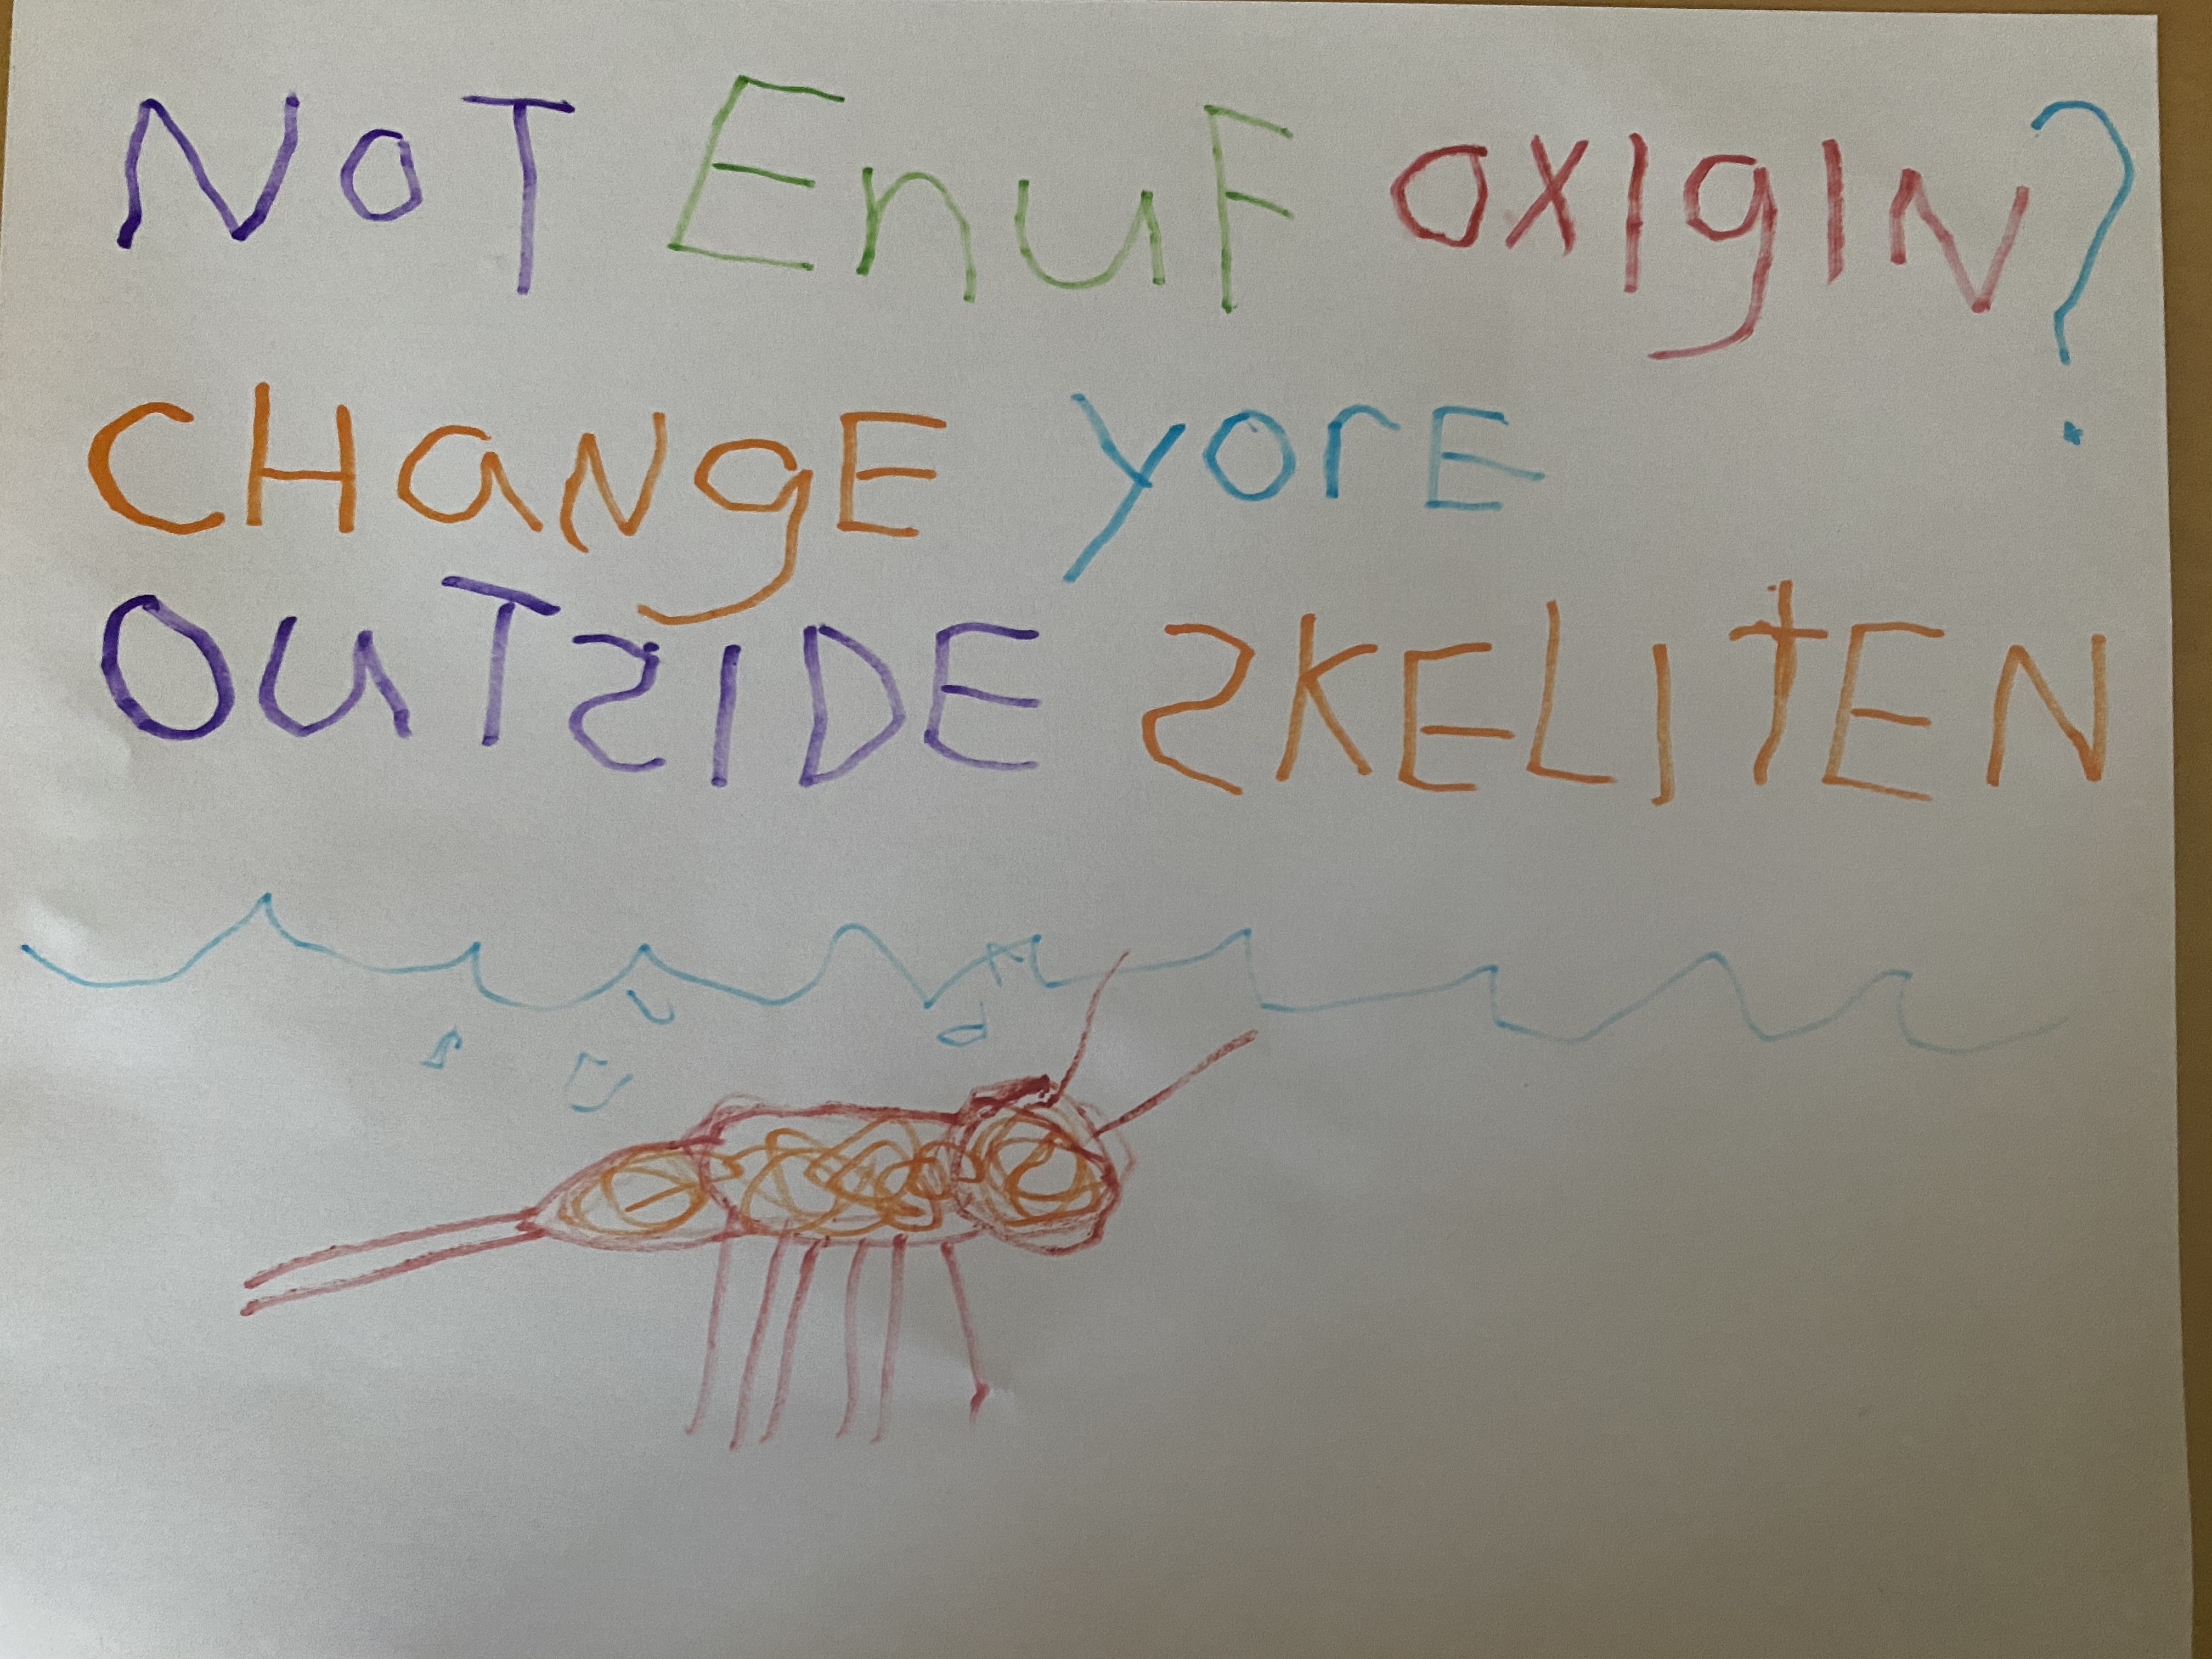 NOT EnuF OXIgIN?
CHaNgE YOrE
OUTSIDE SKELITEN